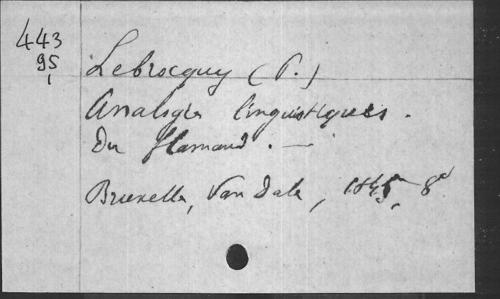 443
95
Lebrocquy (P.)
Analogies linguistiques.
Du flamand. —
Bruxelles, Van Dale, 1845, 8°